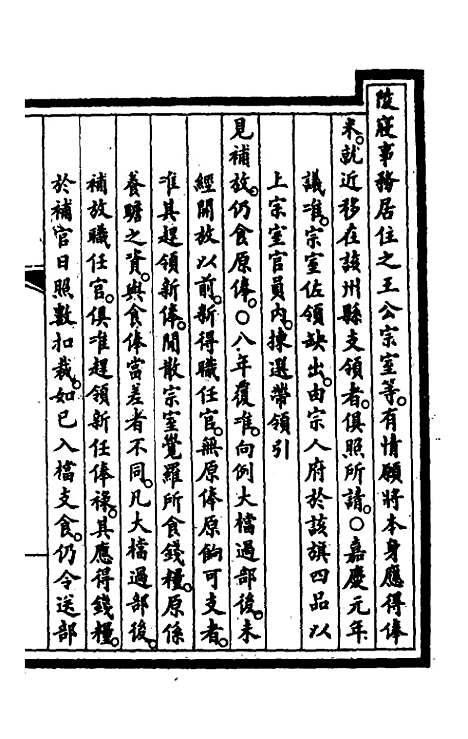 陵寢事務居住之王公宗室等。有情願將本身應得俸
米。就近移在該州縣支領者。俱照所請。○嘉慶元年
議准。宗室佐領缺出。由宗人府於該旗四品以
上宗室官員內。揀選帶領引
見補放。仍食原俸。○八年覆准。向例大檔過部後。未
經開放以前。新得職任官。無原俸原餉可支者。
准其趕領新俸。閒散宗室覺羅所食錢糧。原係
養贍之資。與食俸當差者不同。凡大檔過部後。
補放職任官。俱准趕領新任俸祿。其應得錢糧。
於補官日照數扣裁。如已入檔支食。仍令送部